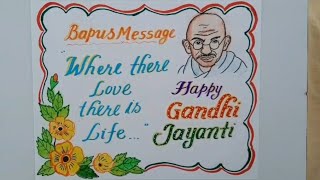 Bapus Message
"Where there
Love
there is
Life..."
Happy
Gandhi
Jayanti